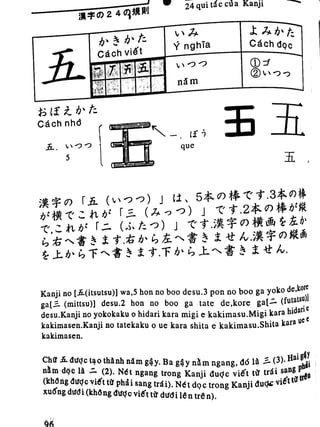 漢字の24の規則
24 qui tắc của Kanji
五
かきかた
Cách viết
一 丆 五 五
いみ
Ý nghĩa
いつつ
năm
よみかた
Cách đọc
①ゴ
②いつつ
おぼえかた
Cách nhớ
五. いつつ
5
一. ぼう
que
五
五
漢字の「五 (いつつ) 」は、5本の棒です.3本の棒
が横でこれが「三 (みっつ) 」です.2本の棒が縦
で,これが「二 (ふたつ) 」です.漢字の横画を左か
ら右へ書きます.右から左へ書きません.漢字の縦画
を上から下へ書きます.下から上へ書きません.
Kanji no [五(itsutsu)] wa,5 hon no boo desu.3 pon no boo ga yoko de,kore
ga[三 (mittsu)] desu.2 hon no boo ga tate de,kore ga[二 (futatsu)]
desu.Kanji no yokokaku o hidari kara migi e kakimasu.Migi kara hidari e
kakimasen.Kanji no tatekaku o ue kara shita e kakimasu.Shita kara ue e
kakimasen.
Chữ 五 được tạo thành năm gậy. Ba gậy nằm ngang, đó là 三 (3). Hai gậy
nằm dọc là 二 (2). Nét ngang trong Kanji được viết từ trái sang phải
(không được viết từ phải sang trái). Nét dọc trong Kanji được viết từ trên
xuống dưới (không được viết từ dưới lên trên).
96